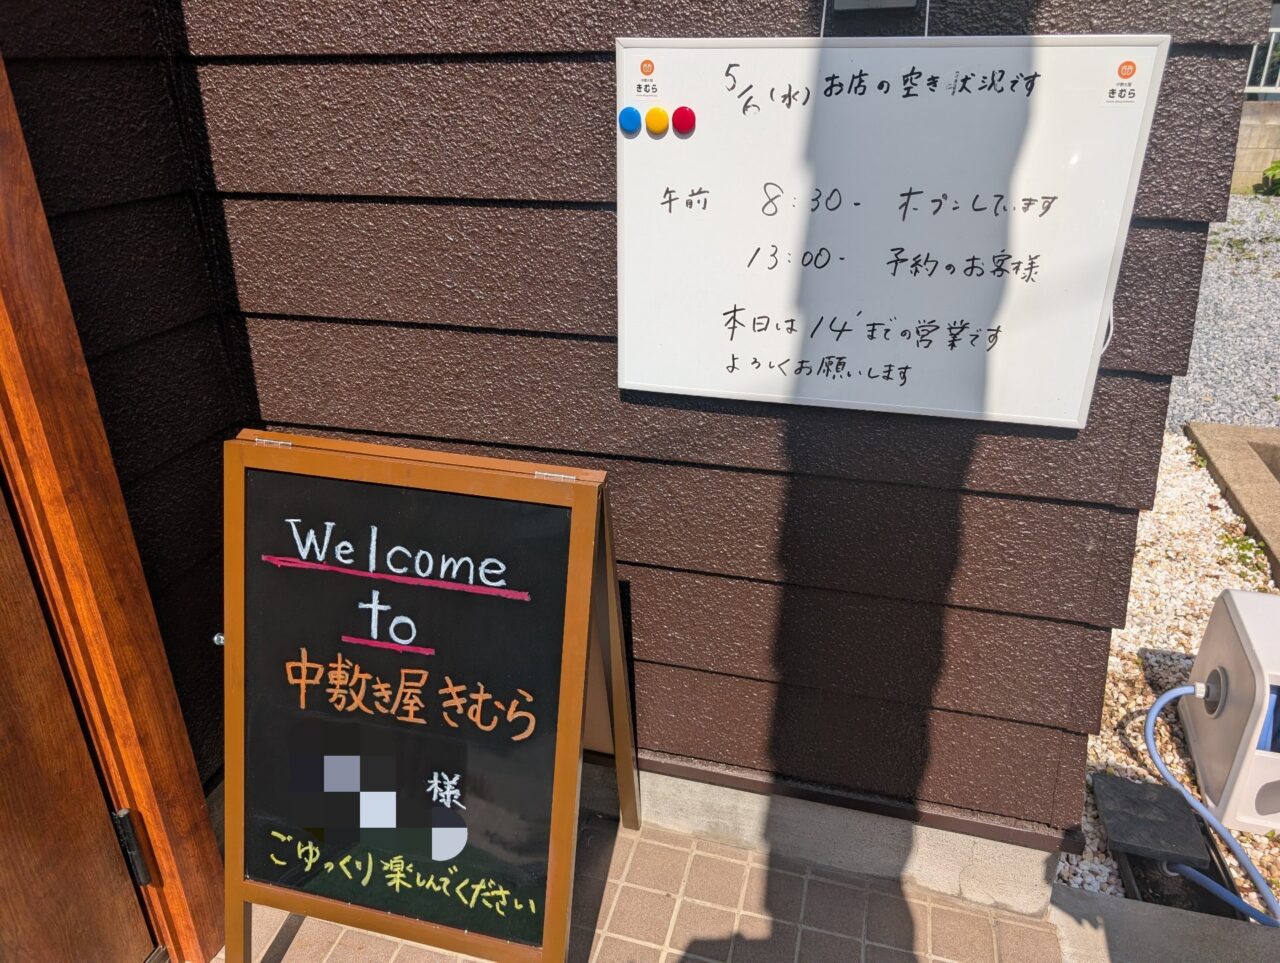 5/6(水) お店の空き状況です
きむら
きむら
午前 8:30- オープンしています
13:00- 予約のお客様
本日は14'までの営業です
よろしくお願いします
Welcome
to
中敷き屋きむら
様
ごゆっくり楽しんでください